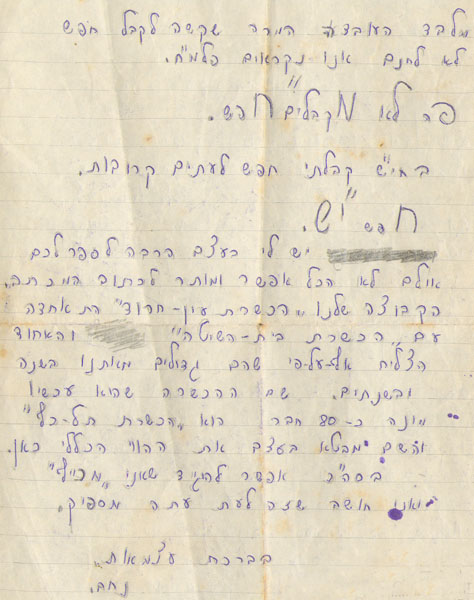 מלבד העובדה המרה שקשה לקבל חפש
לא לחנם אנו נקראים פלמ"ח.
פה לא מקבלים "חפש.
בחי"ש קבלתי חפש לעתים קרובות.
חפש "יש.
יש לי בעצם הרבה לספר לכם
אולם לא הכל אפשר ומותר לכתוב המכתב.
הקבוצה שלנו "הכשרת עין-חרוד" התאחדה
עם "הכשרת בית-השיטה" והאחוד
הצליח אף-על-פי שהם גדולים מאותנו בשנה
ובשנתים. שם ההכשרה שהוא עכשיו
מונה כ-80 חבר הוא "הכשרת תל-כיף"
והשם מבטא בעצם את ההווי הכללי כאן.
בסה"כ אפשר להגיד שאני "מכייף"
ואני חושב שזה לעת עתה מספיק.
בברכת עצמאות,
נחם.